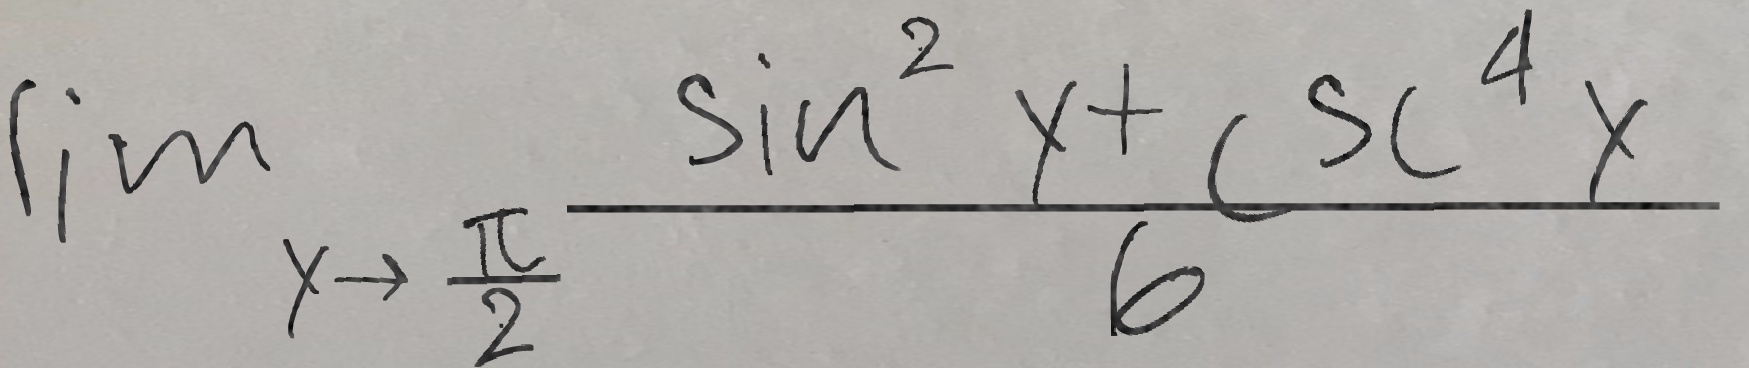 \lim_{y \to \frac{\pi}{2}} \frac{\sin^2 y + \csc^4 y}{6}